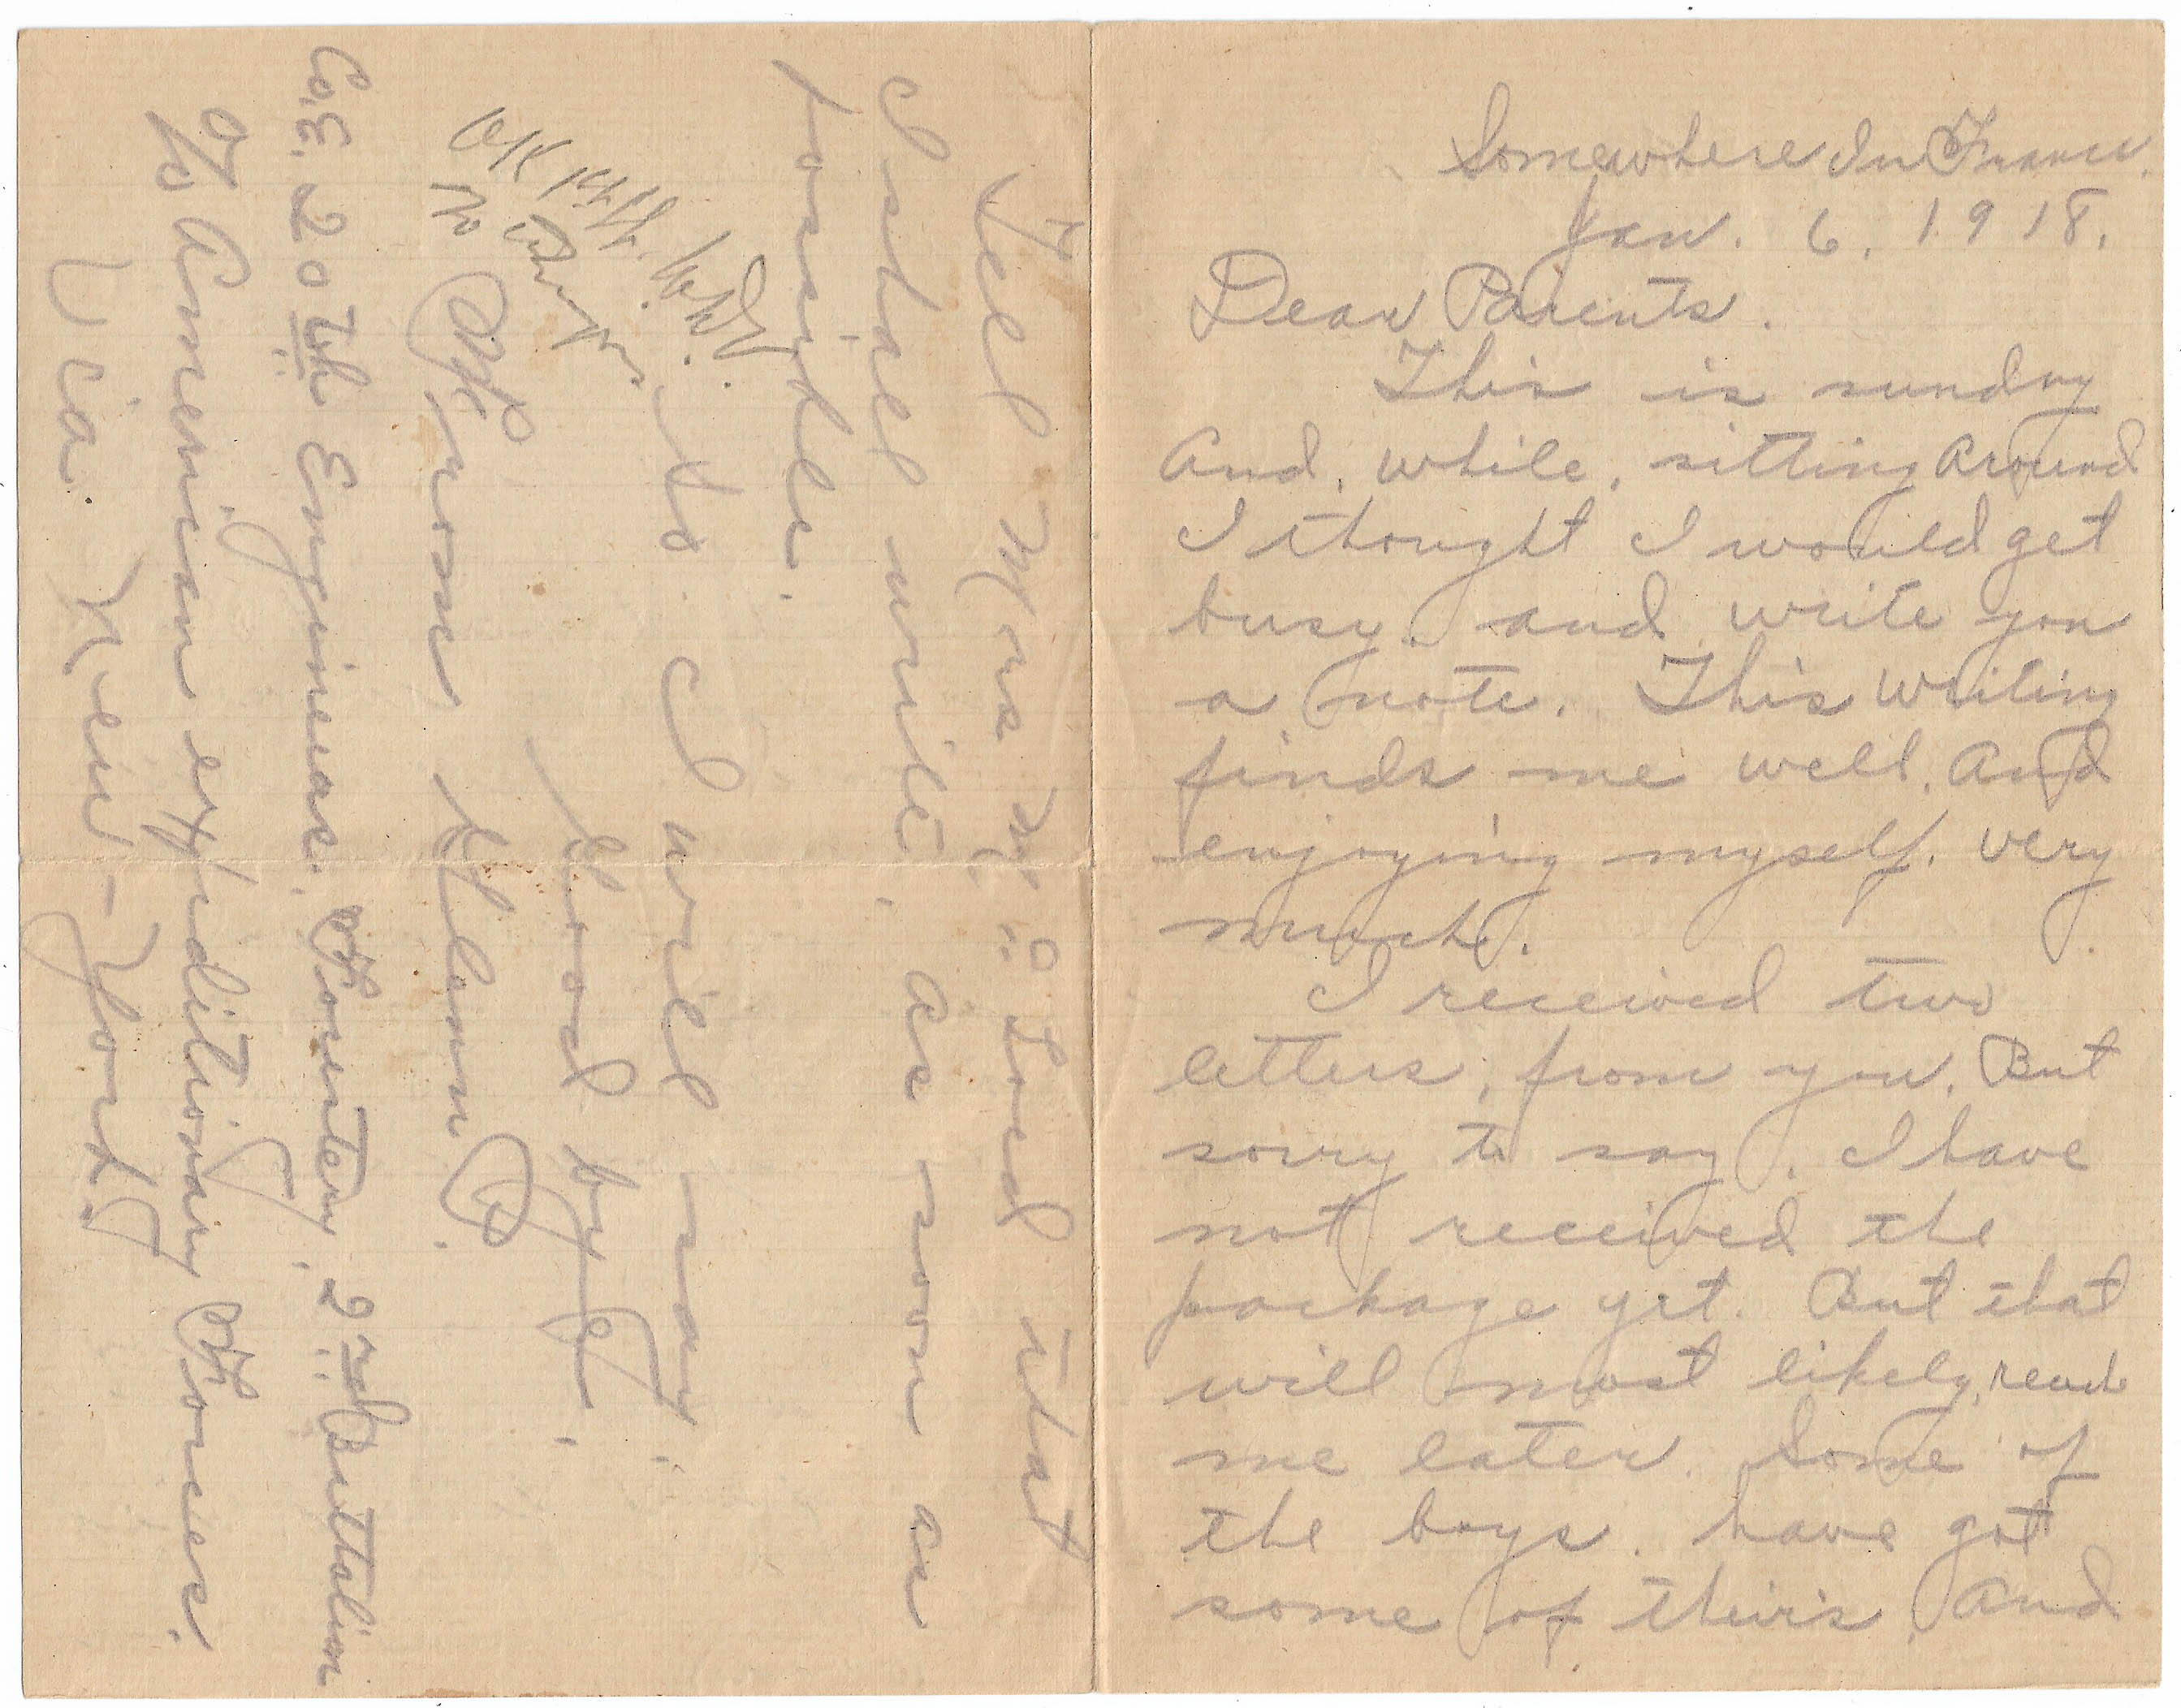 Somewhere In France.
Jan. 6. 1918.
Dear Parents.
This is sunday
And, while, sitting Around
I thought I would get
busy. and write you
a note. This writing
finds me well. And
enjoying myself. very
much.
I received two
letters, from you. But
sorry to say. I have
not received the
package yet. But that
will most likely, reach
me later. Some of
the boys. have got
some of their's. And
Tell Mrs that
I shall write. as soon as
possible.
So I will say.
Good bye.
Co. E. 20th Engineers. Forestery. 2nd Battalion
% American expiditionary Forces.
Via. New-York.
OK